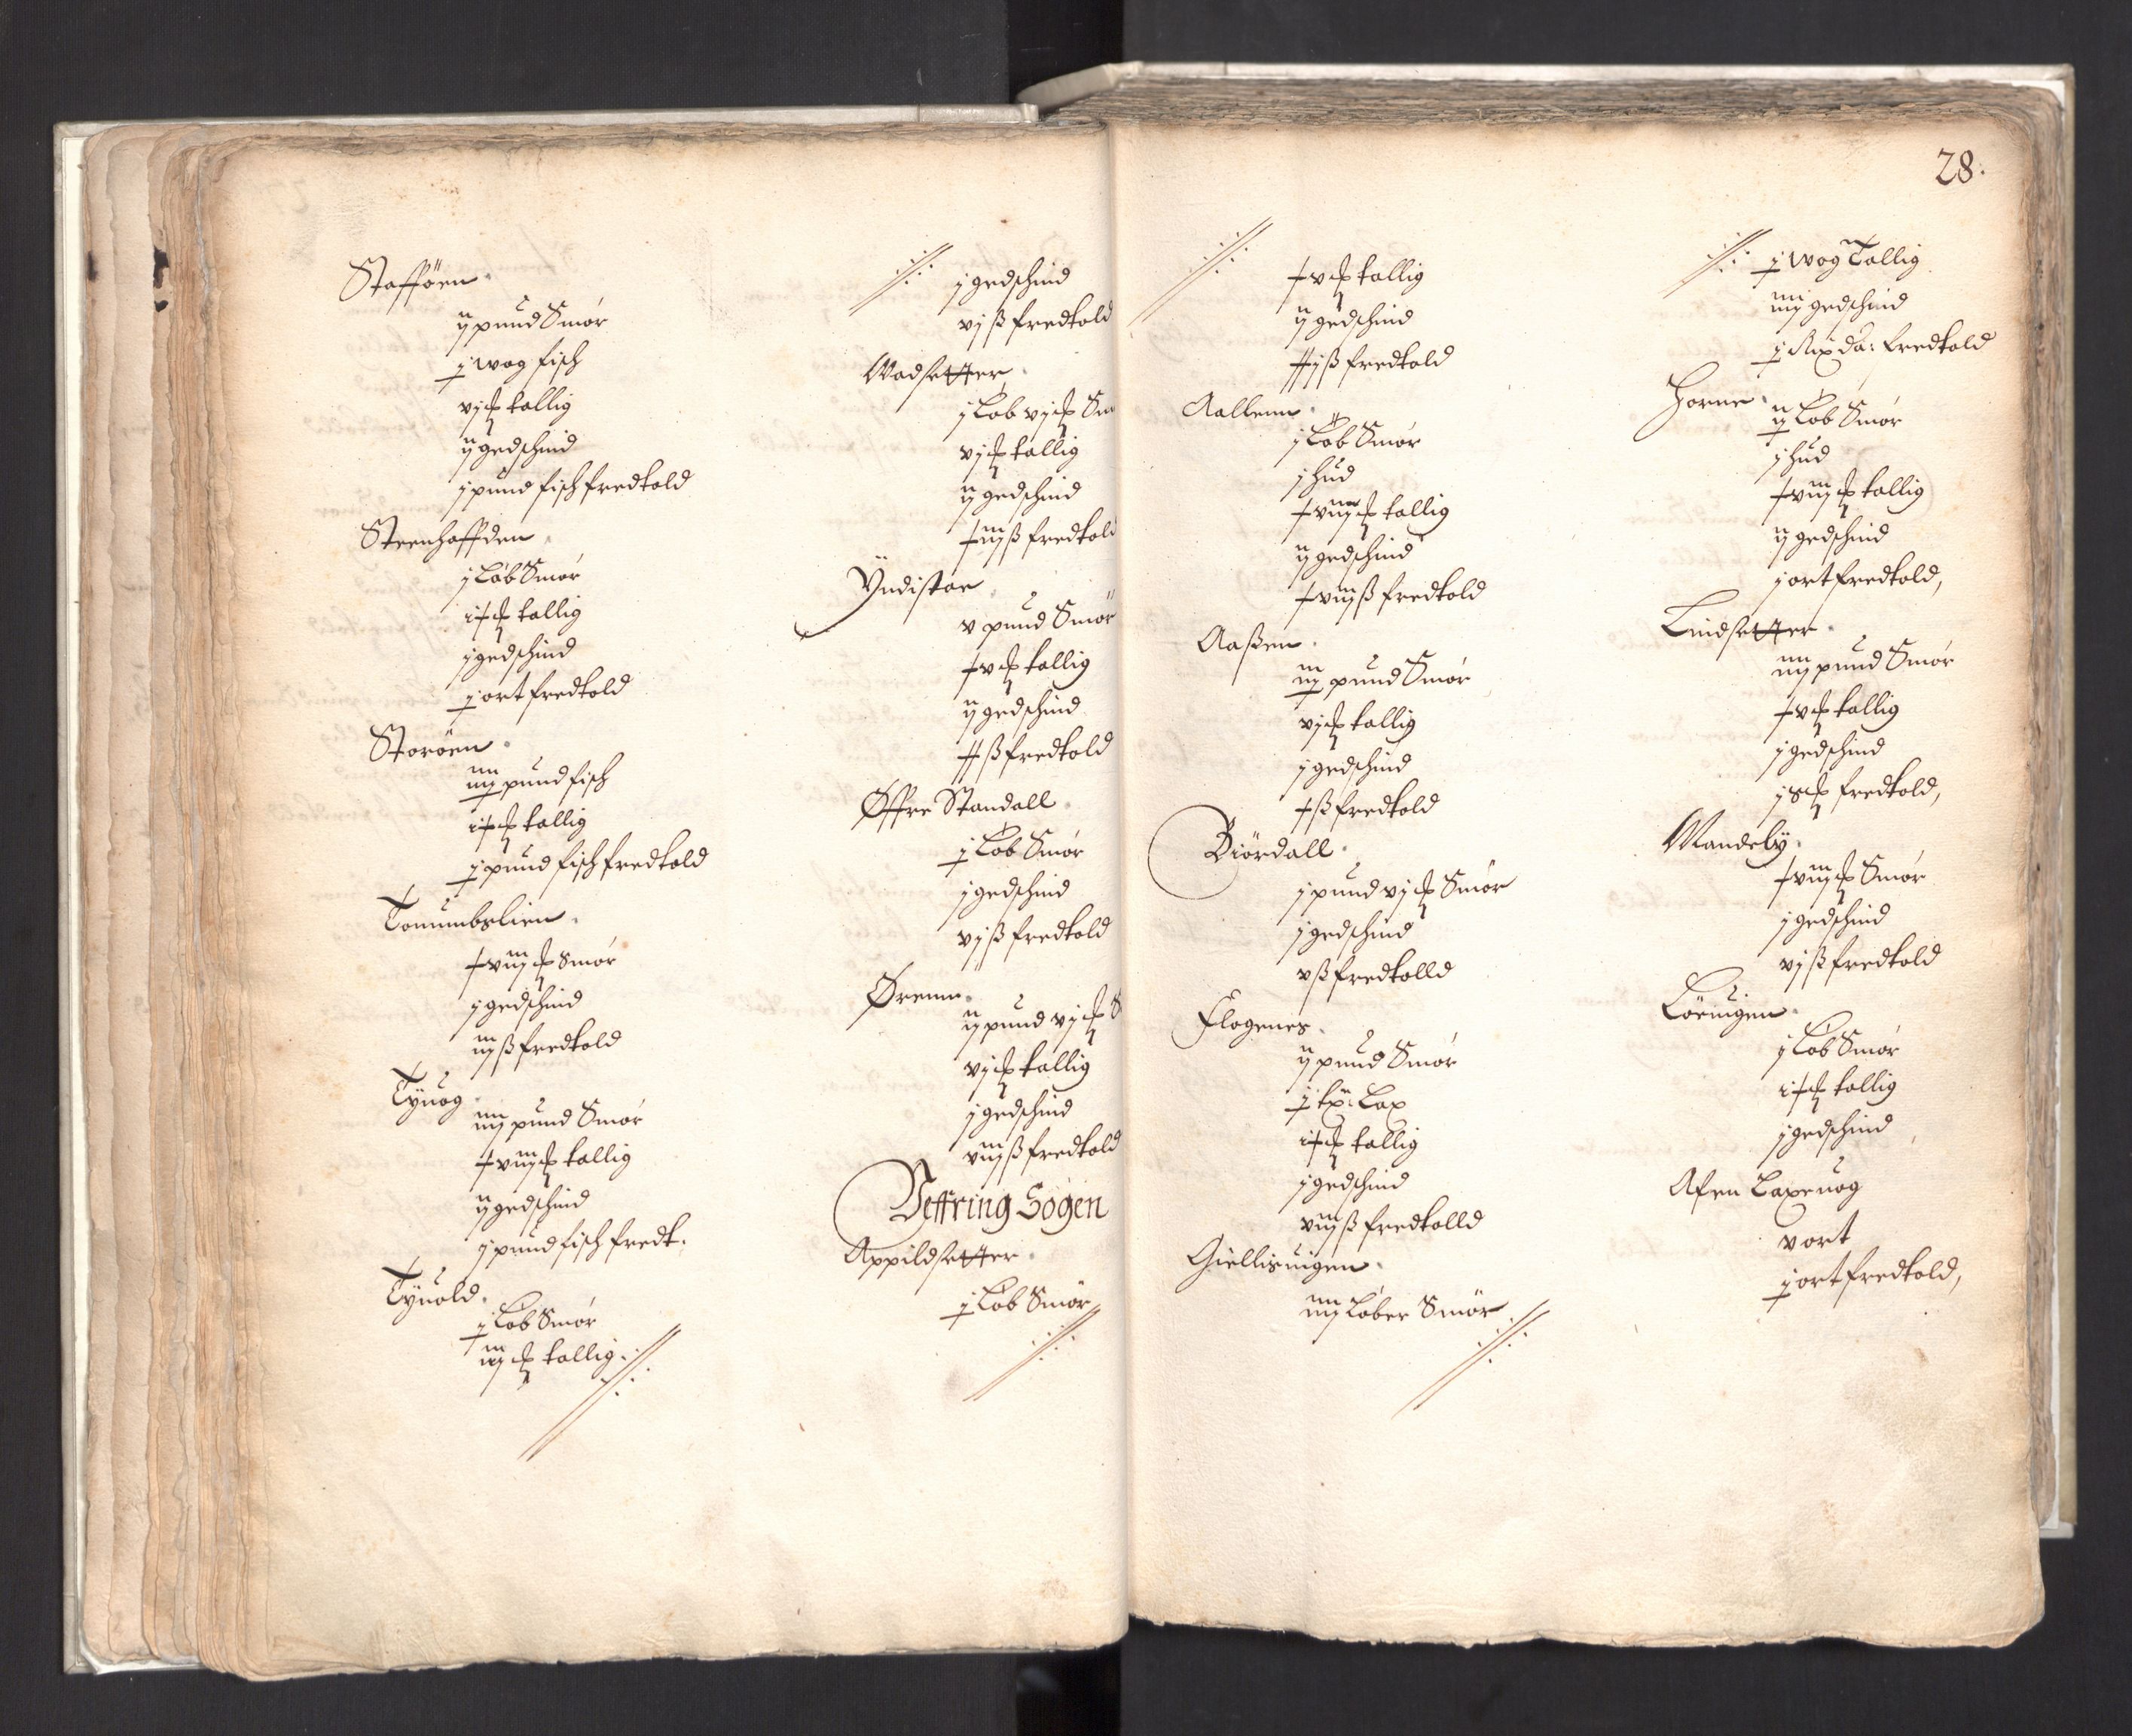 Stafföen.
ij pund Smör
j wog fisch
vj ℔ tallig
ij gedschind
j pund fisch fredtold
Steenhaffden.
j Løb Smör
ix ℔ tallig
j gedschind
j ort fredtold
Storöen.
iiij pund fisch
ix ℔ tallig
j pund fisch fredtold
xviij ℔ smör
j gedschind
iij ß fredtold
Tyuog
iiij pund Smör
xviij ℔ tallig
ij gedschind
j pund fisch fredt.
Tyuold.
j Løb Smör
iij ℔ tallig.
j gedschind
vj ß fredtold
Wadsetter.
j Løb vj ℔ Sm
vj ℔ tallig
ij gedschind
xiij ß fredtold
Yndistøe
v pund Smör
xv ℔ tallig
ij gedschind
xx ß fredtold
Øffre Standall.
j Løb Smör
j gedschind
vj ß fredtold
Ørenn.
ij pund vj ℔ S
vj ℔ tallig
j gedschind
viij ß fredtold
Veffring Sogen
Appildsetter.
j Løb Smör
28.
xv ℔ tallig
ij gedschind
xxj ß fredtold
Aallenn.
j Løb Smör
j hud
xviij ℔ tallig
ij gedschind
xviij ß fredtold
Aaßen.
iij pund Smör
vj ℔ tallig
j gedschind
x ß fredtold
Biördall.
j pund vj ℔ Smör
j gedschind
v ß fredtolld
Flogenes.
ij pund Smör
j tp: Lax
ix ℔ tallig
j gedschind
viij ß fredtolld
Giellisuigen.
iiij Løber Smör
j wog Tallig
iiij gedschind
j Rix da: fredtold
Horne.
ij Løb Smör
j hud
xviij ℔ tallig
ij gedschind
j ort fredtold,
Lindsetter.
iiij pund Smör
xv ℔ tallig
j gedschind
fredtold,
Mandeby.
xviij ℔ Smör
j gedschind
vj ß fredtold
Löeuigen.
j Løb Smör
ix ℔ tallig
j gedschind
Laxeuog
v ort
j ort fredtold,